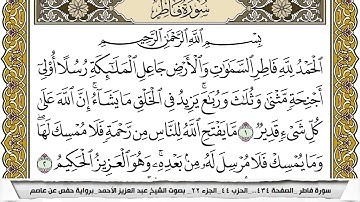 سورة فاطر
بِسْمِ اللَّهِ الرَّحْمَٰنِ الرَّحِيمِ
الْحَمْدُ لِلَّهِ فَاطِرِ السَّمَاوَاتِ وَالْأَرْضِ جَاعِلِ الْمَلَائِكَةِ رُسُلًا أُولِي
أَجْنِحَةٍ مَّثْنَىٰ وَثُلَاثَ وَرُبَاعَ ۚ يَزِيدُ فِي الْخَلْقِ مَا يَشَاءُ ۚ إِنَّ اللَّهَ عَلَىٰ
كُلِّ شَيْءٍ قَدِيرٌ ١ مَّا يَفْتَحِ اللَّهُ لِلنَّاسِ مِن رَّحْمَةٍ فَلَا مُمْسِكَ لَهَا ۖ
وَمَا يُمْسِكْ فَلَا مُرْسِلَ لَهُ مِن بَعْدِهِ ۚ وَهُوَ الْعَزِيزُ الْحَكِيمُ ٢
سورة فاطر .. الصفحة ٤٣٤ .. الحزب ٤٤ .. الجزء ٢٢ .. بصوت الشيخ عبد العزيز الأحمد .. برواية حفص عن عاصم